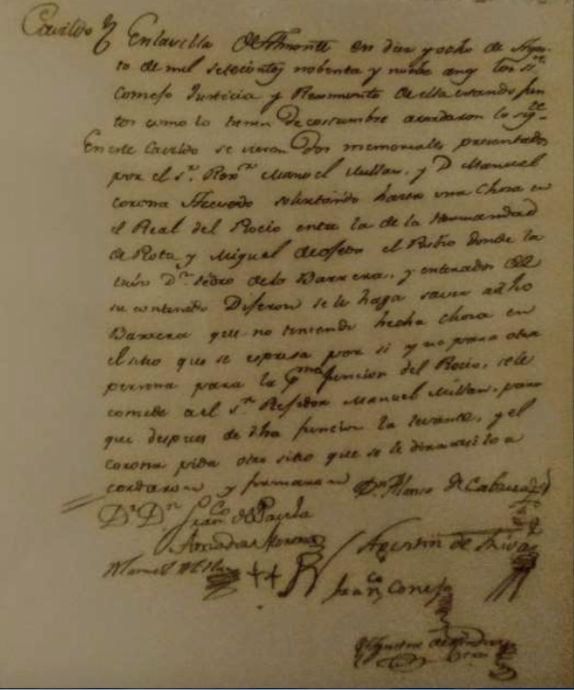 Cavildo En la villa de Almonte en diez y ocho de Agos-
to de mil setecientos nobenta y nuebe años los Sres
Consejo Justicia y Reximiento de ella estando jun-
tos como lo tienen de costumbre acordaron lo sigte
En este Cavildo se vieron Dos memoriales presentados
por el Sr. Rexr Manuel Millan, y D. Manuel
corona Acevedo solicitando hacer una Choza en
el Real del Rocio entre la de la Hermandad
de Rota y Miguel de el Rubio donde la
Dn Pedro de la Barrera, y enterados de
su contenido Dijeron se le haga saver a dho
Barrera que no teniendo hecha choza en
el sitio que se espresa por si y no para otra
persona para la funcion del Rocio, se le
concede a el Sr Rejidor Manuel Millan, para
que despues de dha funcion la levante, y el
corona pida otro sitio que se le asi lo a
cordaron y firmaron Dn Alonso de
Dr Dn Franco de Paula
Moreno Agustin de
Manuel Millan Franco Conejo